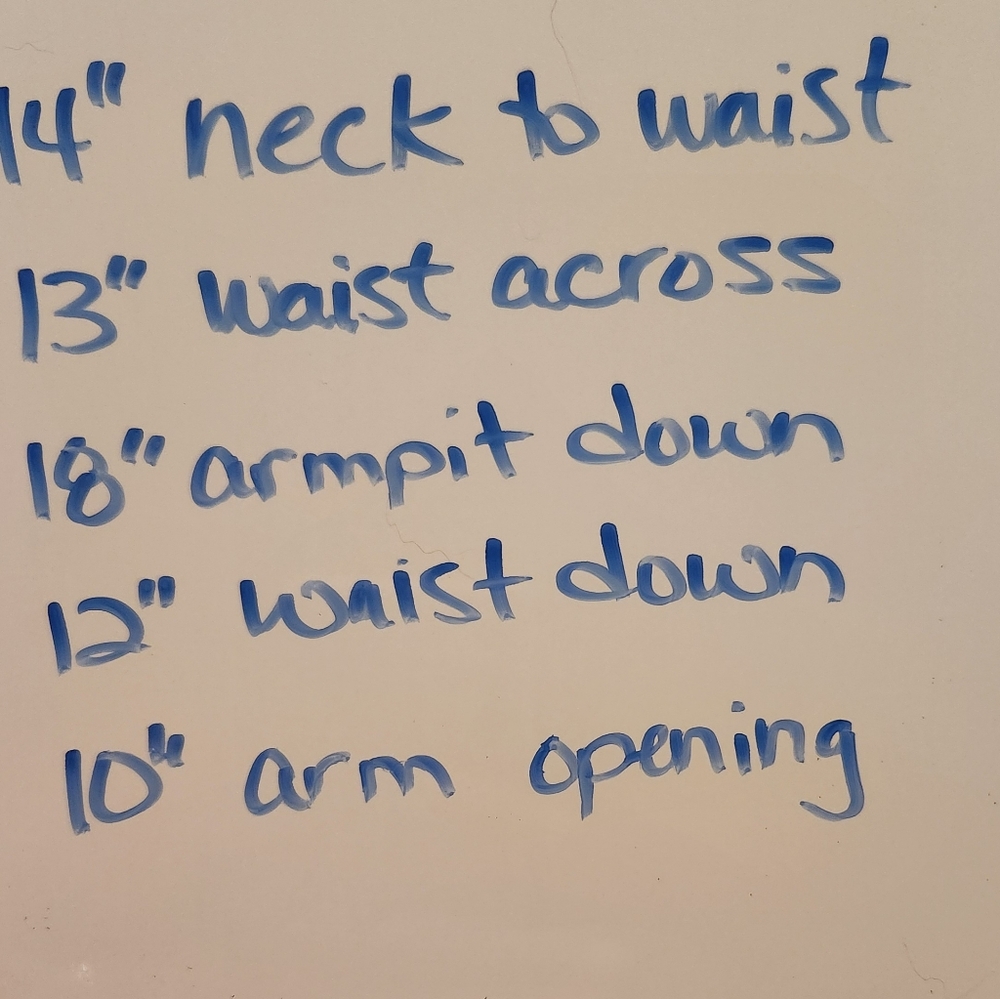 14" neck to waist
13" waist across
18" armpit down
12" waist down
10" arm opening